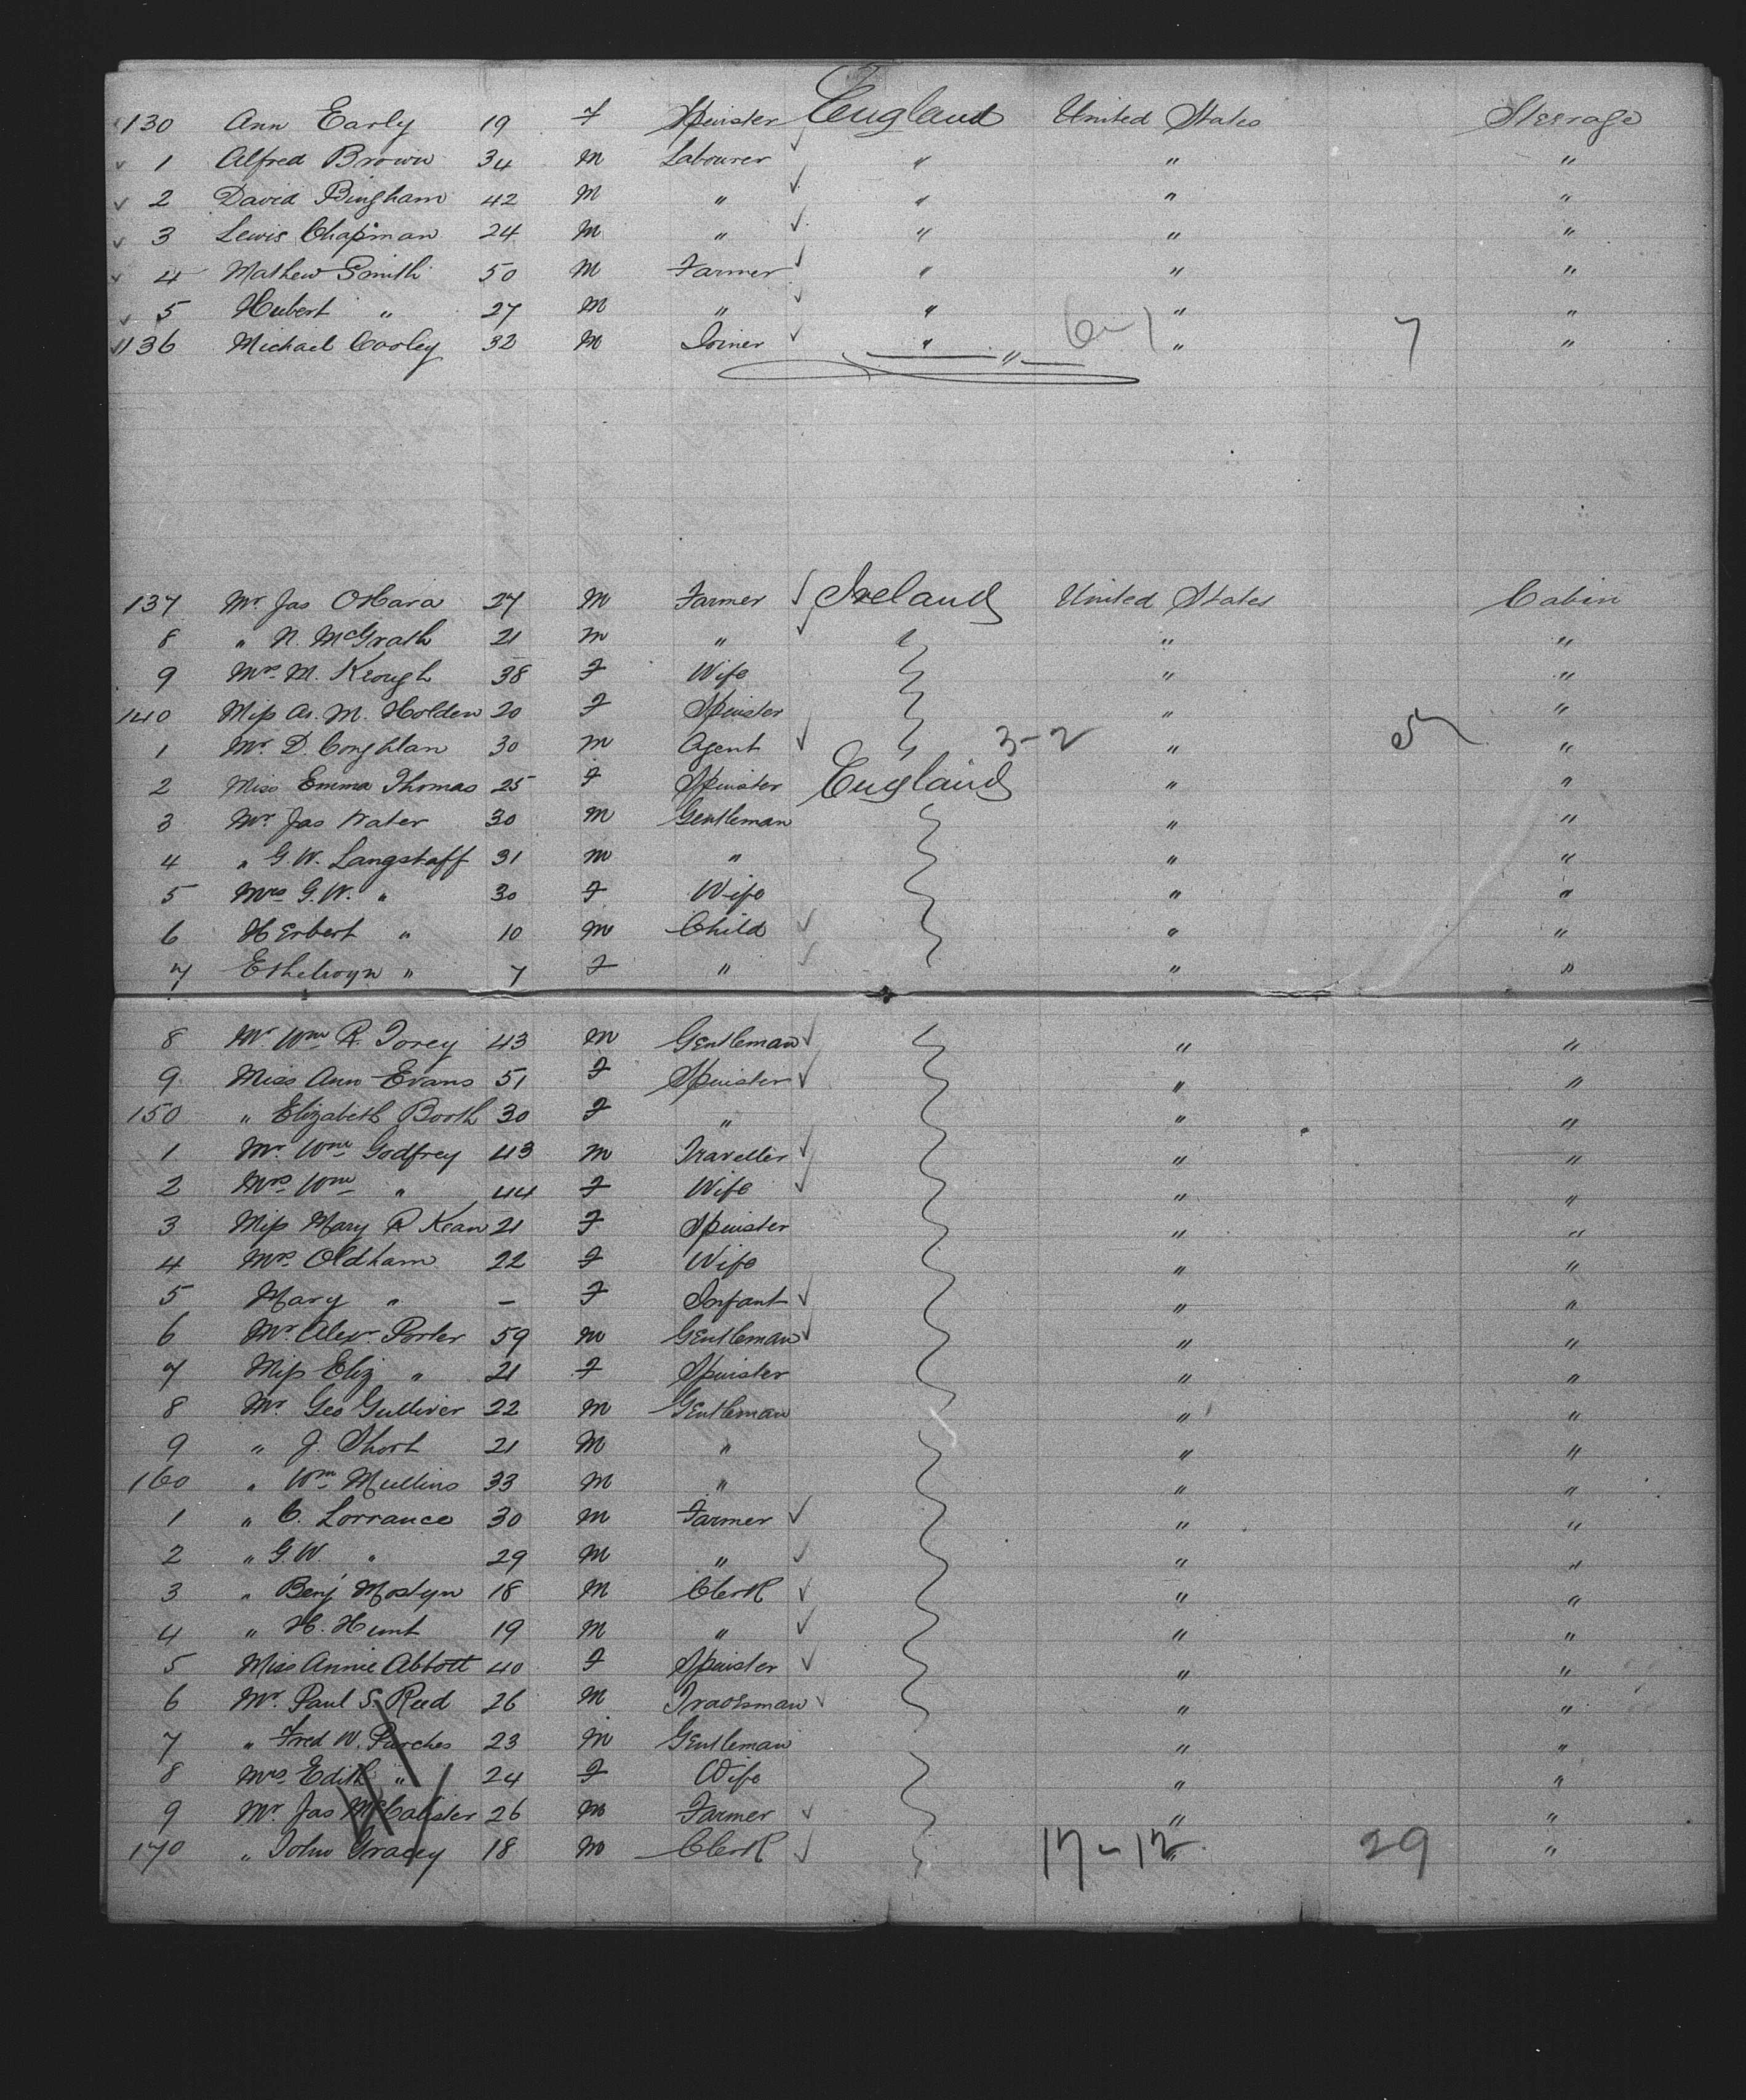 130 Ann Early 19 F Spinster England United States Steerage
1 Alfred Brown 34 M Labourer " " "
2 David Bingham 42 M " " " "
3 Lewis Chapman 24 M " " " "
4 Mathew Smith 50 M Farmer " " "
5 Hubert " 27 M " " " "
136 Michael Cooley 32 M Joiner " 6-1 " 7 "
"
137 Mr. Jas OHara 27 M Farmer Ireland United States Cabin
8 " N. McGrath 21 M " " "
9 Mrs. M. Keough 38 F Wife " "
140 Miss A. M. Holden 20 F Spinster " "
1 Mr. D. Coughlan 30 M Agent 3-2 " 5 "
2 Miss Emma Thomas 25 F Spinster England " "
3 Mr. Jas 30 M Gentleman " "
4 " G. W. Langstaff 31 M " " "
5 Mrs G. W. " 30 F Wife " "
6 Herbert " 10 M Child " "
7 Ethelwyn " 7 F " " "
8 Mr. Wm R. Torey 43 M Gentleman " "
9 Miss Ann Evans 51 F Spinster " "
150 " Elizabeth Booth 30 F " " "
1 Mr. Wm Godfrey 43 M Traveller " "
2 Mrs. Wm " 44 F Wife " "
3 Miss Mary R Kean 21 F Spinster " "
4 Mrs. Oldham 22 F Wife " "
5 Mary " - F Infant " "
6 Mr. Alexr. Porter 59 M Gentleman " "
7 Miss Eliz " 21 F Spinster " "
8 Mr. Geo Gulliver 22 M Gentleman " "
9 " J. Short 21 M " " "
160 " Wm Mullins 33 M " " "
1 " C. Lorrance 30 M Farmer " "
2 " G. W. " 29 M " " "
3 " Benj Mostyn 18 M Clerk " "
4 " H. Hunt 19 M " " "
5 Miss Annie Abbott 40 F Spinster " "
6 Mr. Paul S. Reed 26 M Tradesman " "
7 " Fred W. Purches 23 M Gentleman " "
8 Mrs. Edith " 24 F Wife " "
9 Mr. Jas McCalister 26 M Farmer " "
170 " John Gracey 18 M Clerk 17-12 " 29 "